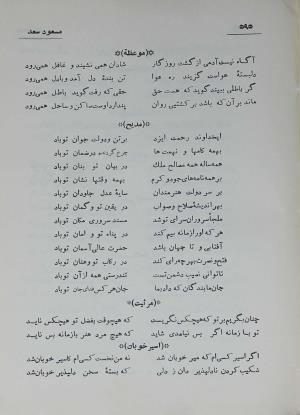 «۵۹۵» مسعود سعد
*(موعظه)*
آگاه نیست آدمی از گشت روزگار شادان همی نشیند و غافل همی‌رود
دلبستهٔ هواست گزیند ره هوا تن بندهٔ دل آمد و با دل همی‌رود
گر باطلی ببیند گوید که هست حق حقی که رفت گوید باطل همی‌رود
ماند بر آن که باشد بر کشتیی روان پندارد اوست ساکن و ساحل همی‌رود
*(مدیح)*
ایخداوند رحمت ایزد بر تن و دولت جوان تو باد
بهمه کامها و نهمت ها چرخ گردنده در ضمان تو باد
همه ساله همه مصالح ملك در بیان تو و بنان تو باد
بر همه نامه‌های جود و کرم بهمه وقتها نشان تو باد
بر سر دولت هنرمندان سایهٔ عدل جاودان تو باد
بهر اندیشهٔ صلاح و صواب در یقین تو و گمان تو باد
ملجأ سروران سرای تو شد مسند سروری مکان تو باد
هر که او از زمانه بیم کند در پناه تو و امان تو باد
آفتابی و تا جهان باشد حضرت عالی آسمان تو باد
فتح و نصرت بهر چه رای کند در رکاب تو و عنان تو باد
ناتوانی نصیب دشمن تست تندرستی همه از آن تو باد
جان ما بندگان که داد بما جان هر کس فدای جان تو باد
*(مرثیت)*
چنان بگریم بر تو که هیچکس نگریست که هیچوقت بفضل تو هیچکس ناید
تو با زمانه اگر بس نیامدی شاید که هیچ مرد هنر با زمانه بس ناید
*(اسیر خوبان)*
اگر اسیر کسی‌ام که میر خوبان شد نه من نخست کسی‌ام کاسیر خوبان شد
شگفت کردن نا دلپذیر دان ز دلی که بستهٔ سخن دلپذیر خوبان شد